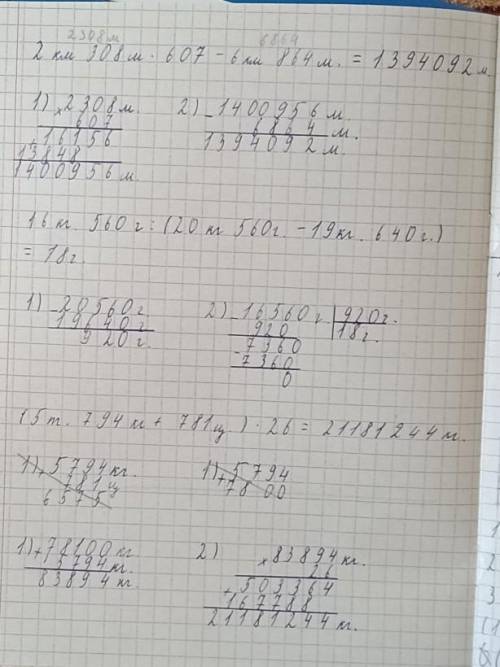 2308м 6864
2 км 308 м · 607 - 6 км 864 м. = 1394092 м
1) × 2308 м. 2) - 1400956 м.
607 6864 м.
+ 16156 1394092 м.
13848
1400956 м.
16 кг. 560 г : (20 кг 560 г. - 19 кг. 640 г.)
= 18 г.
1) - 20560 г 2) - 16560 г. | 920 г.
19640 г 920 18 г.
920 г. 7360
- 7360
0
(5 т. 794 кг + 781 ц.) · 26 = 21181244 кг.
1) + 5794 кг. 1) + 5794
781 ц 78 00
6575
1) + 78100 кг 2) × 83894 кг.
5794 кг. 26
83894 кг. + 503364
167788
21181244 кг.